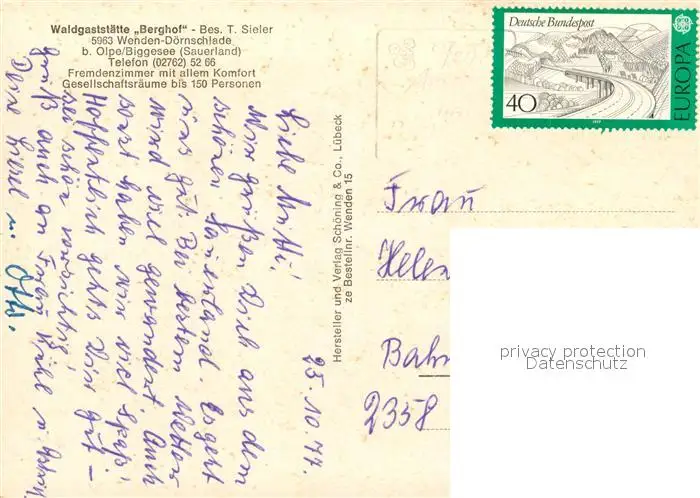 Waldgaststätte „Berghof" - Bes. T. Sieler
5963 Wenden-Dörnschlade
b. Olpe/Biggesee (Sauerland)
Telefon (02762) 52 66
Fremdenzimmer mit allem Komfort
Gesellschaftsräume bis 150 Personen
25.10.77.
Liebe Mutti!
Wir grüßen Dich aus dem
schönen Sauerland. Es geht
uns gut. Bei bestem Wetter
wird viel gewandert. Auch
sonst haben wir viel Spaß!
Hoffentlich gehts Dir gut –
sei schön vorsichtig!
Gruß auch an Frau
Deine Liesel u. Otto.
Hersteller und Verlag Schöning & Co., Lübeck
ze Bestellnr. Wenden 15
Deutsche Bundespost
40
1977
EUROPA
Frau
Helen
Bahn
2358
privacy protection
Datenschutz